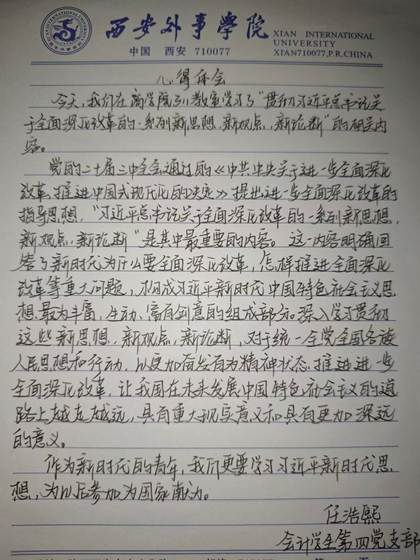 西安外事学院
XIAN INTERNATIONAL
UNIVERSITY
中国 西安 710077
XIAN710077,P.R.CHINA
心得体会
今天,我们在商学院311教室学习了"贯彻习近平总书记关
于全面深化改革的一系列新思想,新观点,新论断"的相关内
容。
党的二十届三中全会通过的《中共中央关于进一步全面深化
改革、推进中国式现代化的决定》提出进一步全面深化改革的
指导思想,"习近平总书记关于全面深化改革的一系列新思想,
新观点,新论断"是其中最重要的内容。这一内容明确回
答了新时代为什么要全面深化改革,怎样推进全面深化
改革等重大问题,构成习近平新时代中国特色社会主义思
想最为丰富,生动,富有创意的组成部分。深入学习贯彻
这些新思想,新观点,新论断,对于统一全党全国各族
人民思想和行动,以更加奋发有为精神状态推进进一步
全面深化改革,让我国在未来发展中国特色社会主义的道
路上越走越远,具有重大现实意义和具有更加深远
的意义。
作为新时代的青年,我们更要学习习近平新时代思
想,为以后参加为国家献力。
任浩熙
会计学生第四党支部